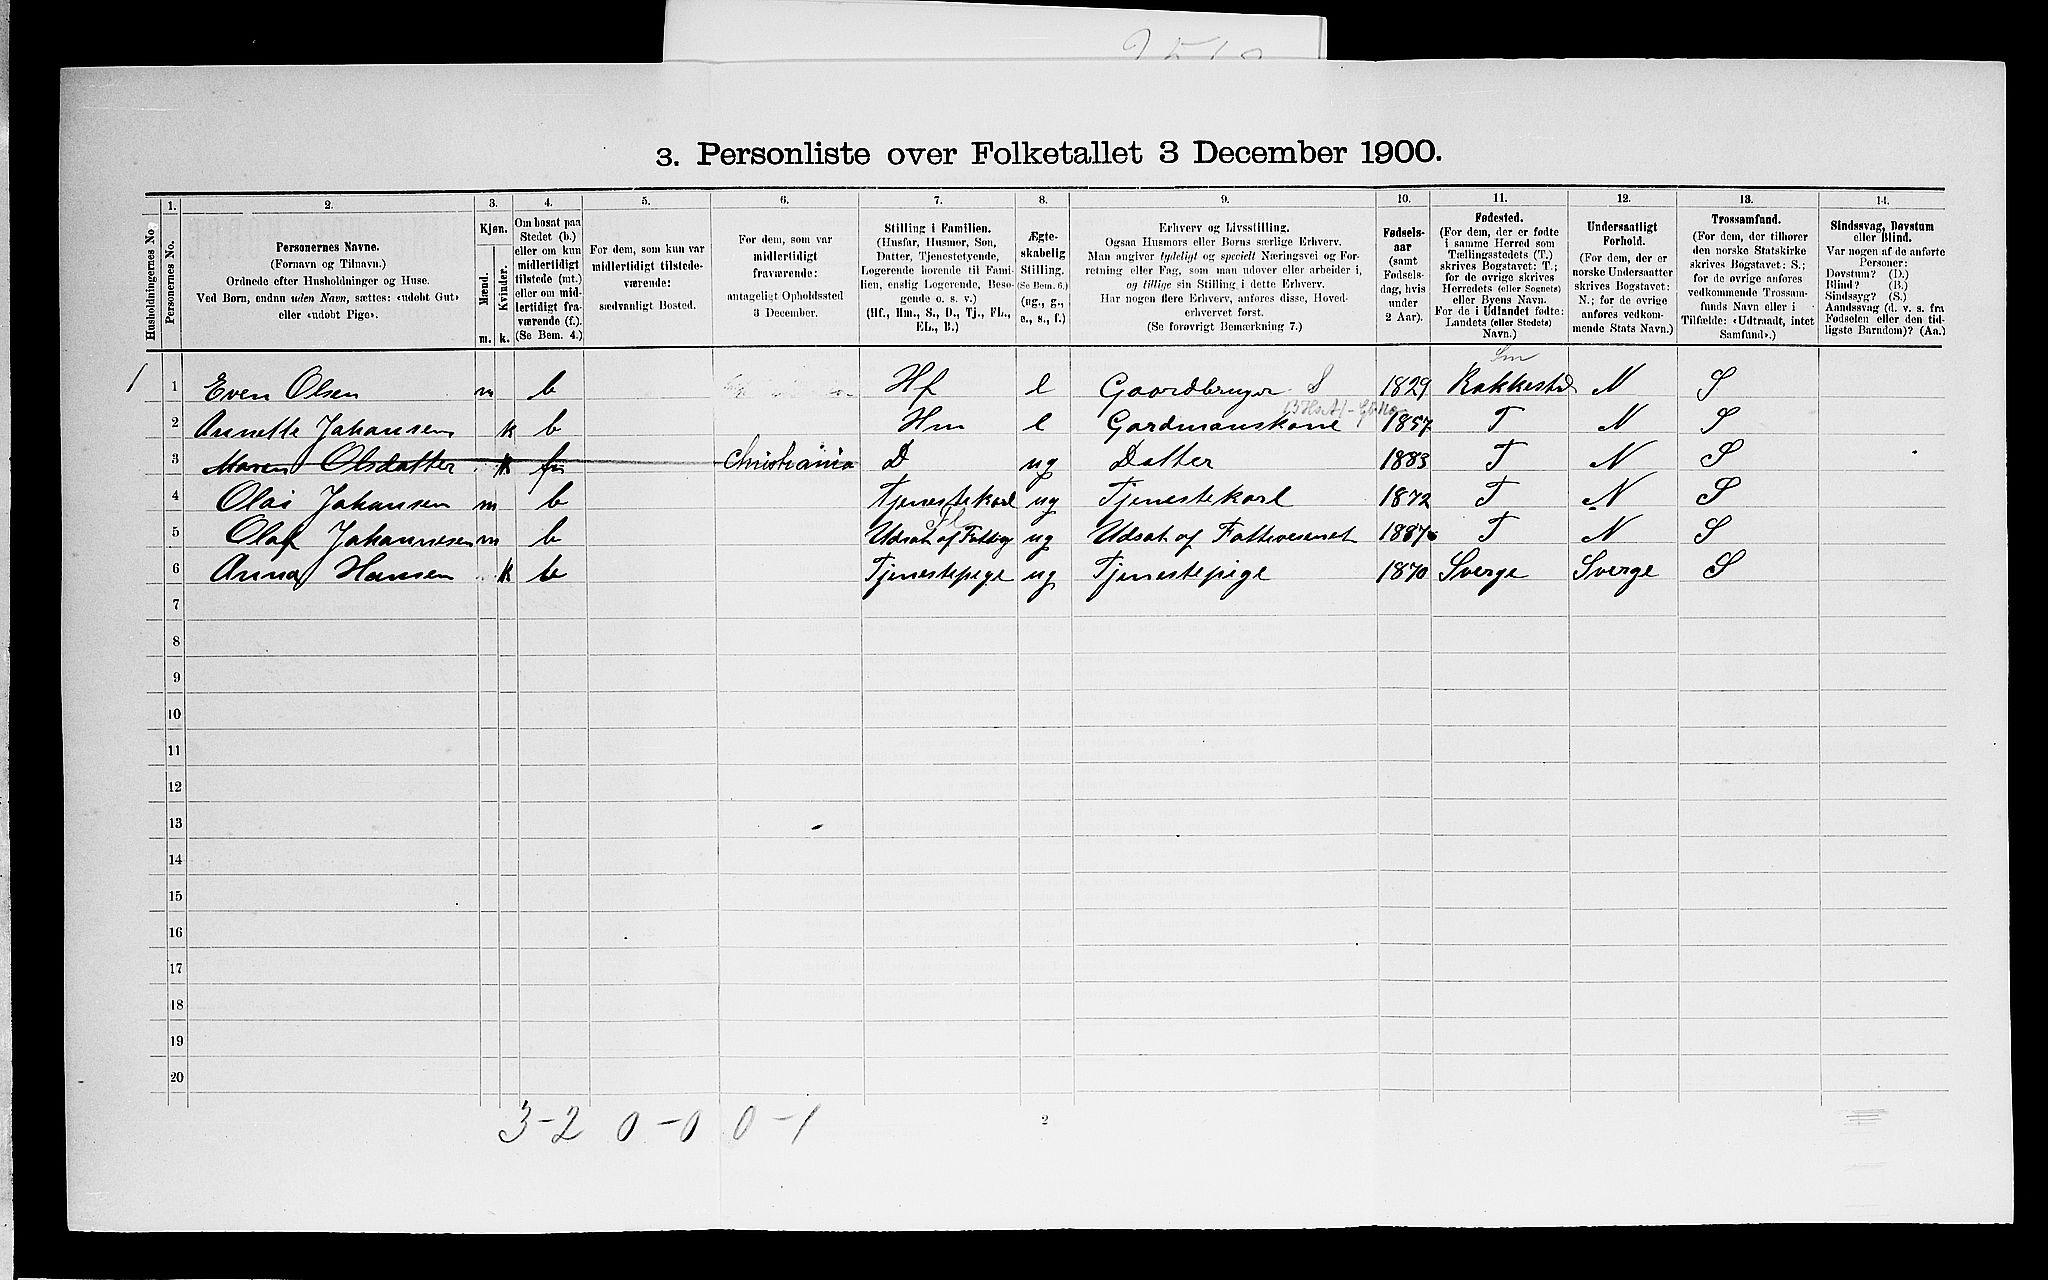 3. Personliste over Folketallet 3 December 1900.
1. 2. 3. 4. 5. 6. 7. 8. 9. 10. 11. 12. 13. 14.
Husholdningernes No
Personernes No.
Personernes Navne.
(Fornavn og Tilnavn.)
Ordnede efter Husholdninger og Huse.
Ved Børn, endnu uden Navn, sættes: «udøbt Gut»
eller «udøbt Pige».
Kjøn.
Mænd.
Kvinder.
m. k.
Om bosat paa
Stedet (b.)
eller om kun
midlertidigt
tilstede (mt.)
eller om mid-
lertidigt fra-
værende (f.).
(Se Bem. 4.)
For dem, som kun var
midlertidigt tilstede-
værende:
sædvanligt Bosted.
For dem, som var
midlertidigt
fraværende:
antageligt Opholdssted
3 December.
Stilling i Familien.
(Husfar, Husmor, Søn,
Datter, Tjenestetyende,
Logerende hørende til Fami-
lien, enslig Logerende, Besø-
gende o. s. v.)
(Hf., Hm., S., D., Tj., FL.,
EL., B.)
Ægte-
skabelig
Stilling.
(Se Bem. 6.)
(ug., g.,
e., s., f.)
Erhverv og Livsstilling.
Ogsaa Husmors eller Børns særlige Erhverv.
Man angiver tydeligt og specielt Næringsvei og For-
retning eller Fag, som man udøver eller arbeider i,
og tillige sin Stilling i dette Erhverv.
Har nogen flere Erhverv, anføres disse, Hoved-
erhvervet først.
(Se forøvrigt Bemærkning 7.)
Fødsels-
aar
(samt
Fødsels-
dag, hvis
under
2 Aar).
Fødested.
(For dem, der er fødte
i samme Herred som
Tællingsstedets (T.)
skrives Bogstavet: T.;
for de øvrige skrives
Herredets (eller Sognets)
eller Byens Navn.
For de i Udlandet fødte:
Landets (eller Stedets)
Navn.)
Undersaatligt
Forhold.
(For dem, der er
norske Undersaatter
skrives Bogstavet:
N.; for de øvrige
anføres vedkom-
mende Stats Navn.)
Trossamfund.
(For dem, der tilhører
den norske Statskirke
skrives Bogstavet: S.;
for de øvrige anføres
vedkommende Trossam-
funds Navn eller i
Tilfælde: «Udtraadt, intet
Samfund».)
Sindssvag, Døvstum
eller Blind.
Var nogen af de anførte
Personer:
Døvstum? (D.)
Blind? (B.)
Sindssyg? (S.)
Aandssvag (d. v. s. fra
Fødselen eller den tid-
ligste Barndom)? (Aa.)
1 1 Even Olsen m b Hf e Gaardbruger S 1829 Rakkestad N S
2 Annette Johansen k b Hm e Gardmanskone 1857 T N S
3 Maren Olsdatter k fr Christiania D ug Datter 1883 T N S
4 Olai Johansen m b Tjenestekarl ug Tjenestekarl 1872 T N S
5 Olaf Johannesen m b Udsat af Fattigv ug Udsat af Fattivesenet 1887 T N S
6 Anna Hansen k b Tjenestepige ug Tjenestepige 1870 Sverge Sverge S
7
8
9
10
11
12
13
14
15
16
17
18
19
20
3-2 0-0 0-1
2